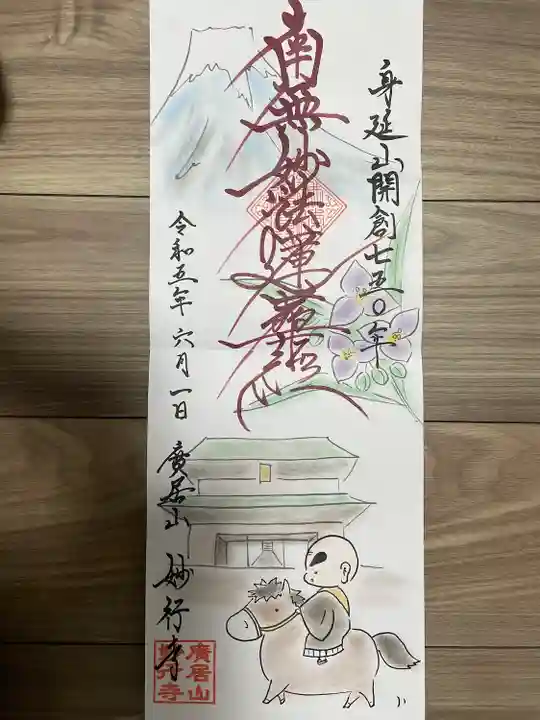 身延山開創七五〇年
南無妙法蓮華経
令和五年 六月一日
廣居山 妙行寺
廣居山
妙行寺